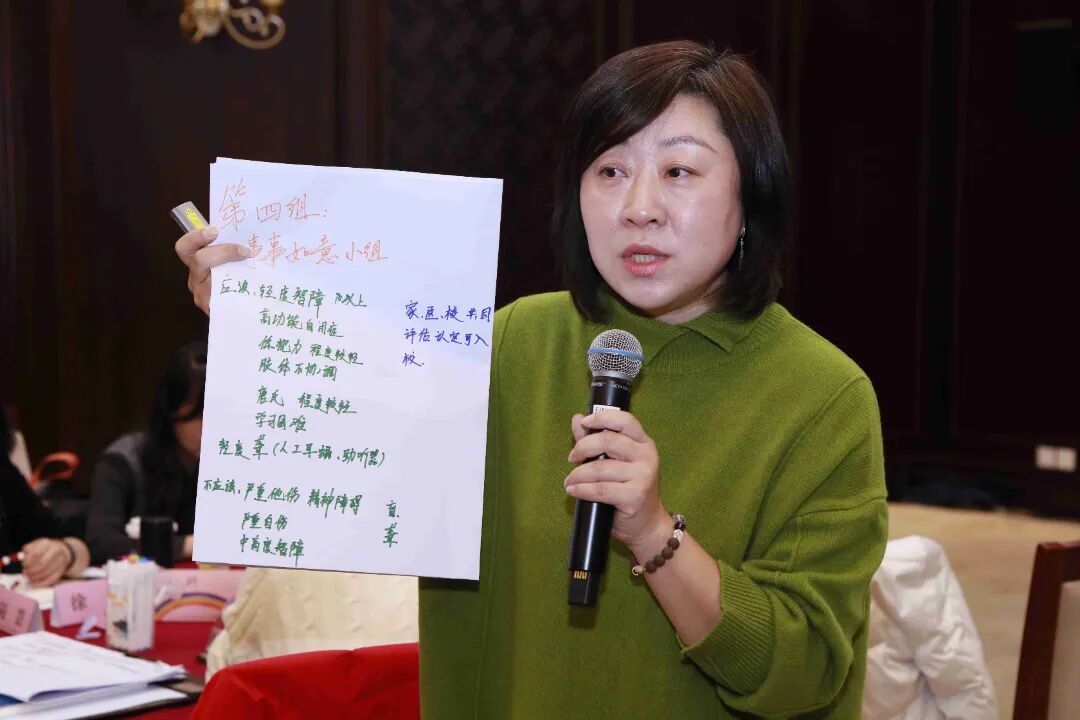 第四组:
事事如意小组
应该:轻度智障 70以上
高功能自闭症
低视力 程度较轻
肢体不协调
唐氏 程度较轻
学习困难
轻度聋(人工耳蜗、助听器)
家、医、校共同
评估认定可入
校.
不应该:严重他伤 精神障碍 盲
严重自伤 聋
中高度智障
徐